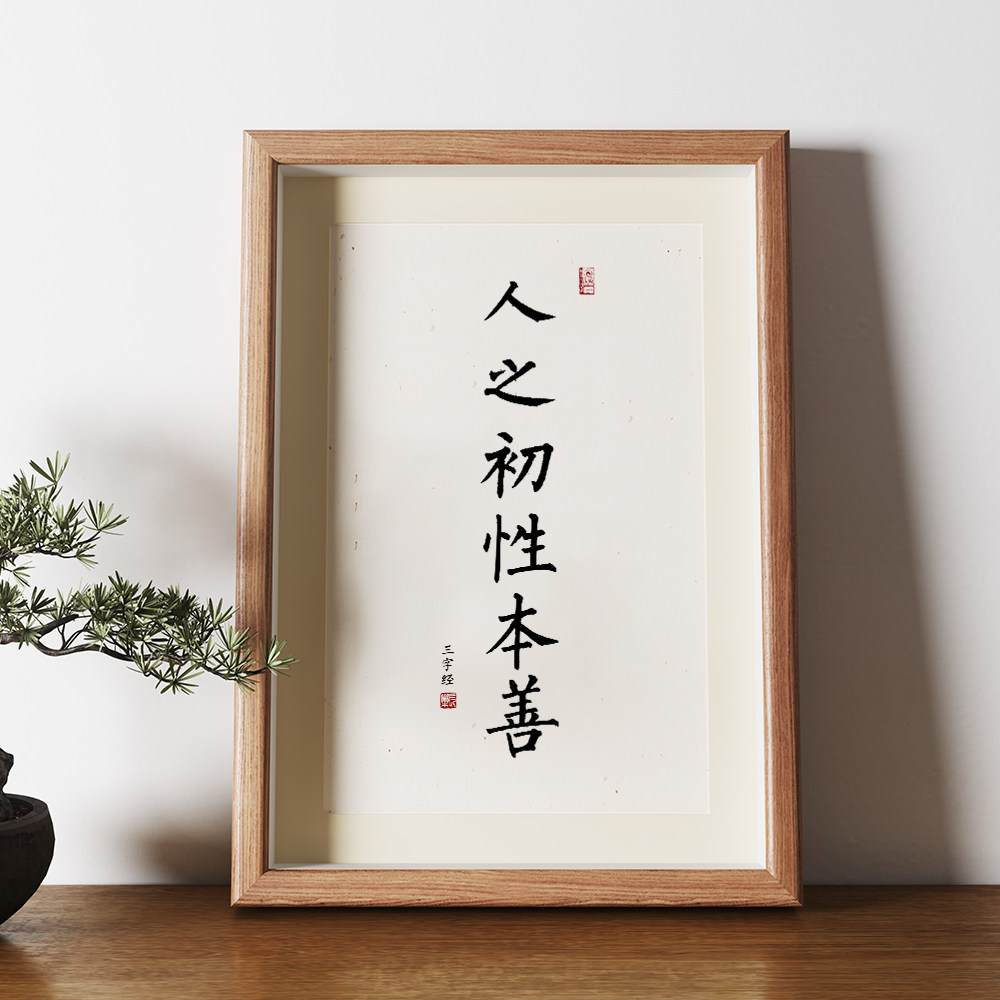 人之初性本善
三字经